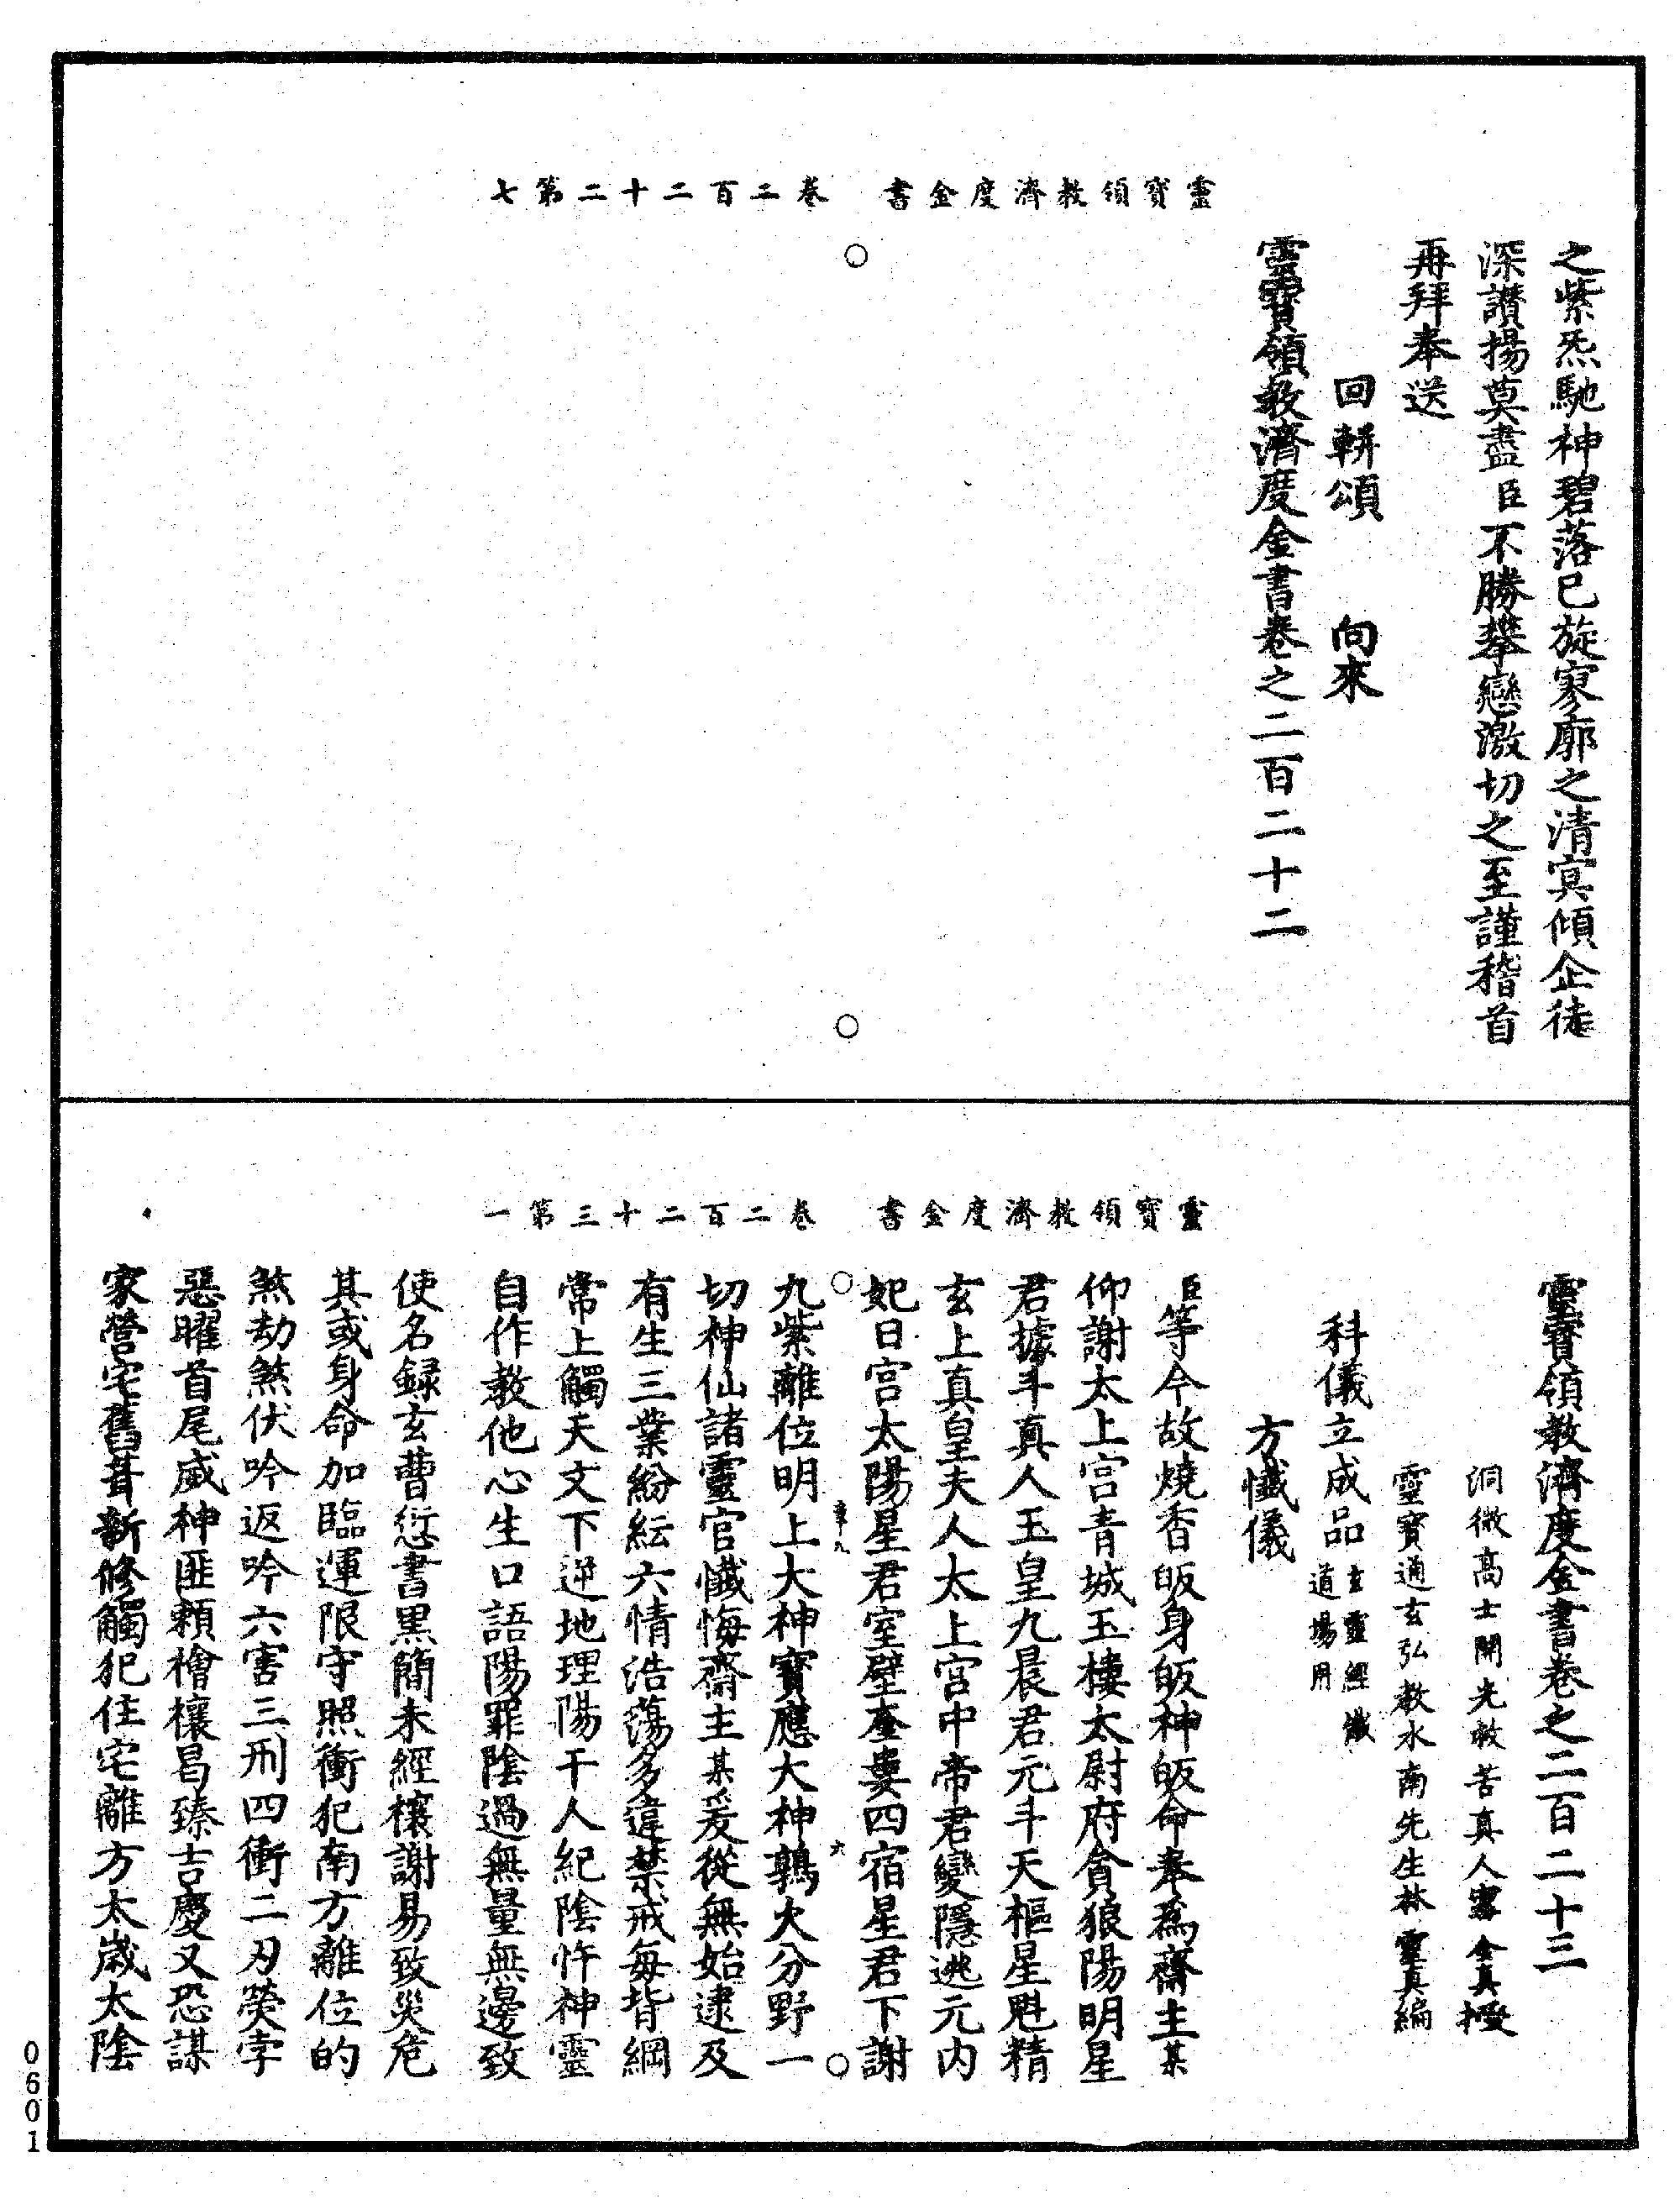 靈寶領教濟度金書　卷二百二十二第七
之紫炁馳神碧落已旋寥廓之清㝠傾企徒
深讚揚莫盡臣不勝攀戀激切之至謹稽首
再拜奉送
回軿頌　向來
靈寶領教濟度金書卷之二百二十二
靈寶領教濟度金書　卷二百二十三第一
靈寶領教濟度金書卷之二百二十三
洞微高士開光救苦真人甯全真授
靈寶通玄弘教水南先生林靈真編
科儀立成品玄靈經懺道場用
方懺儀
臣等今故燒香皈身皈神皈命奉為齋主某
仰謝太上宮青城玉樓太尉府貪狼陽明星
君據斗真人玉皇九晨君元斗天樞星魁精
玄上真皇夫人太上宮中帝君變隱逃元內
妃日宮太陽星君室壁奎婁四宿星君下謝
九紫離位明上大神寶應大神鶉火分野一
切神仙諸靈官懺悔齋主某爰從無始逮及
有生三業紛紜六情浩蕩多違禁戒每背綱
常上觸天文下逆地理陽干人紀陰忤神靈
自作教他心生口語陽罪陰過無量無邊致
使名録玄曹愆書黑簡未經禳謝易致災危
其或身命加臨運限守照衝犯南方離位的
煞劫煞伏吟返吟六害三刑四衝二刃熒孛
惡曜首尾威神匪賴禬禳曷臻吉慶又恐謀
家營宅舊葺新修觸犯住宅離方太歲太陰
0601